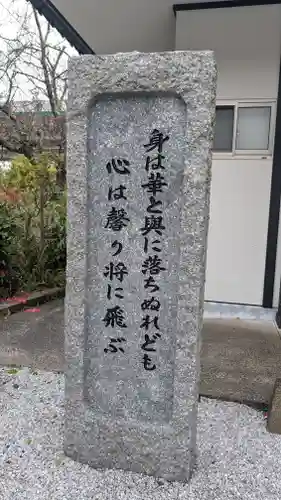 身は華と與に落ちぬれども
心は馨り将に飛ぶ